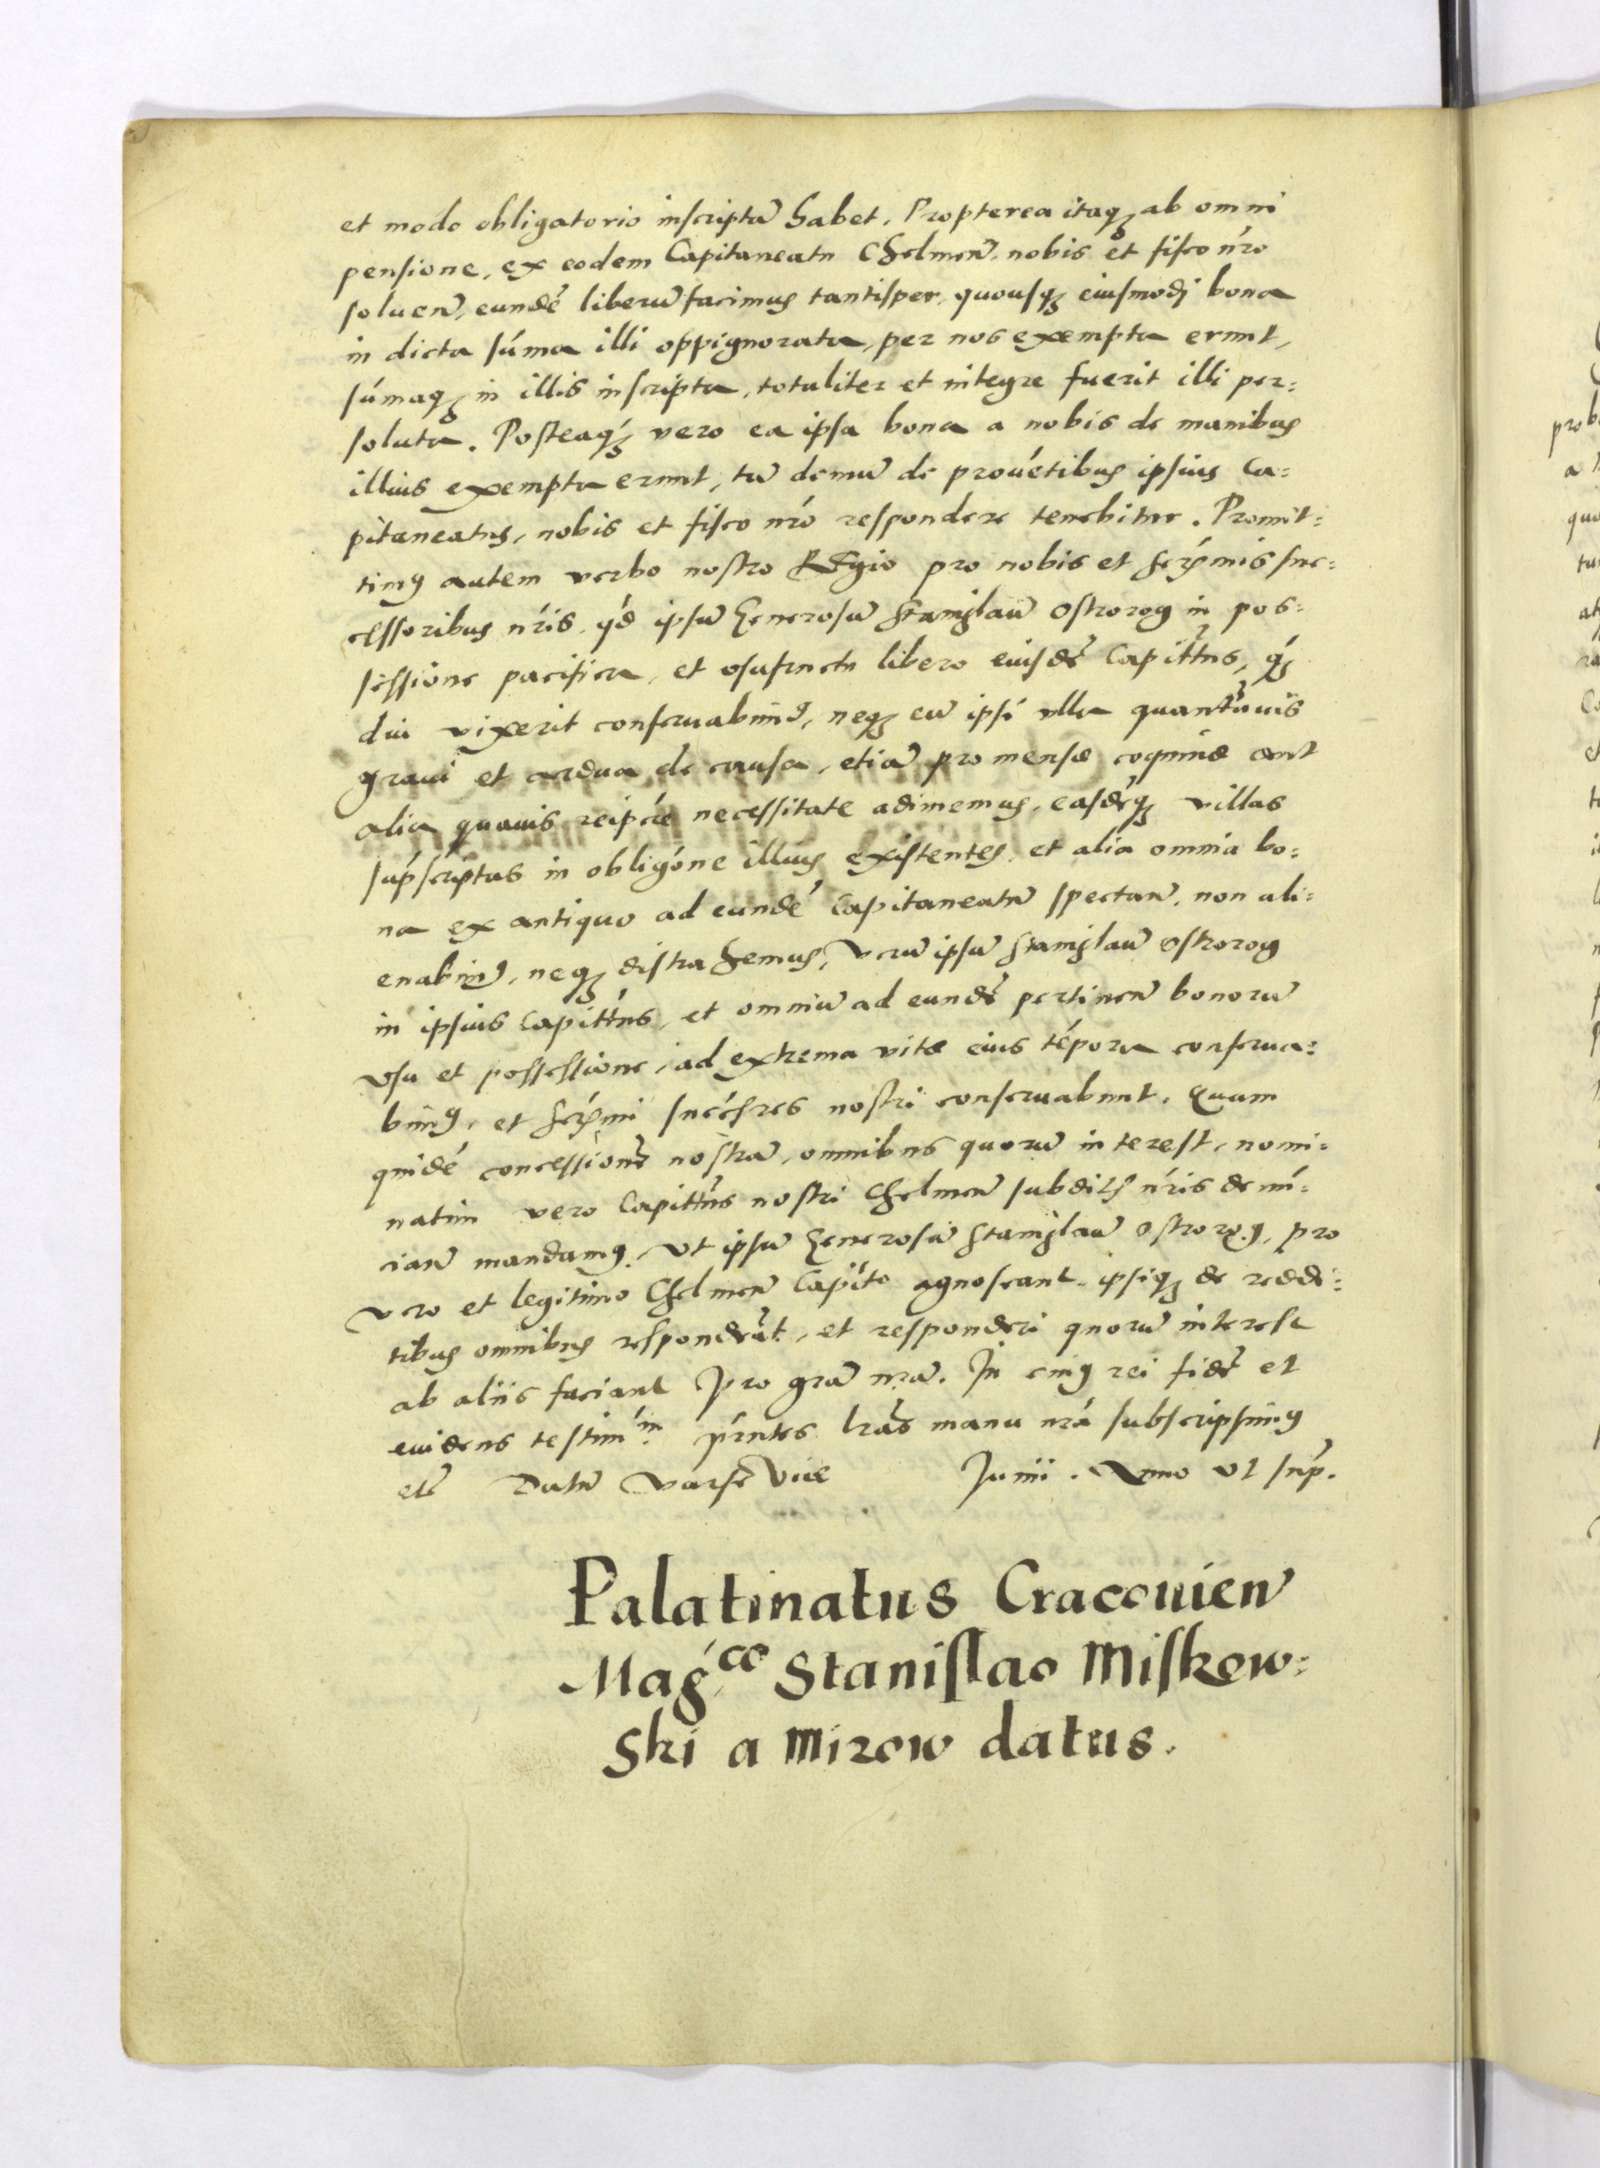 et modo obligatorio inscriptū habet. Propterea itaqꝫ ab omni
pensione, ex eodem Capitaneatu Chelmeń. nobis et fisco nr̃o
soluen̄, eundē liberū facimus tantisper, quousqꝫ eiusmodi bona
in dicta sūma illi oppignorata, per nos exempta erunt,
sūmaqꝫ in illis inscripta, totaliter et integre fuerit illi per=
soluta. Posteaqꝫ vero ea ipsa bona a nobis de manibus
illius exempta erunt, tū demū de prouētibus ipsius Ca=
pitaneatus, nobis et fisco nr̃o respondere tenebitur. Promit=
timꝰ autem verbo nostro Regio pro nobis et serm̃is suc=
cessoribus nr̃is, qd̃ ipsū generosū Stanislaū Ostrorog in pos=
sessione pacifica, et vsufructu libero eiusdē Capittus, qꝫ
diu vixerit conseruabimꝰ, neqꝫ eū ipsi vlla quantūuis
graui et ardua de causa, etiā pro mensæ coquinæ aut
alia quauis reipcæ necessitate adimemus, easdēqꝫ villas
supscriptas in obligōne illius existentes, et alia omnia bo=
na ex antiquo ad eundē Capitaneatū spectan̄, non ali=
enabimꝰ, neqꝫ distrahemus, verū ipsū Stanislaū Ostrorog
in ipsius Capittus, et omniū ad eundē pertinen̄ bonorū
vsu et possessione, ad extrema vitæ eius tēpora conserua=
bimꝰ, et serm̃i succēsres nostri conseruabunt. Quam
quidē concessionē nostrā, omnibus quorū interest, nomi=
natim vero Capittus nostri Chelmeń subditis nr̃is denūi=
cian̄ mandamꝰ. Vt ipsū generosū Stanislaū Ostrorog, pro
vero et legitimo Chelmeń Capito agnoscant, ipsiqꝫ de reddi=
tibus omnibus respondeāt, et responderi quorū interest
ab aliis faciant pro grā nr̃a. In cuiꝰ rei fidē et
euidens testimm̃ pn̄tes lrãs manu nrã subscripsimꝰ
etc̃ Datū Varsouiæ Junii. Anno vt sup̃.
Palatinatus Cracouień
Mag̃co Stanislao Miskow=
ski a Mirow datus.